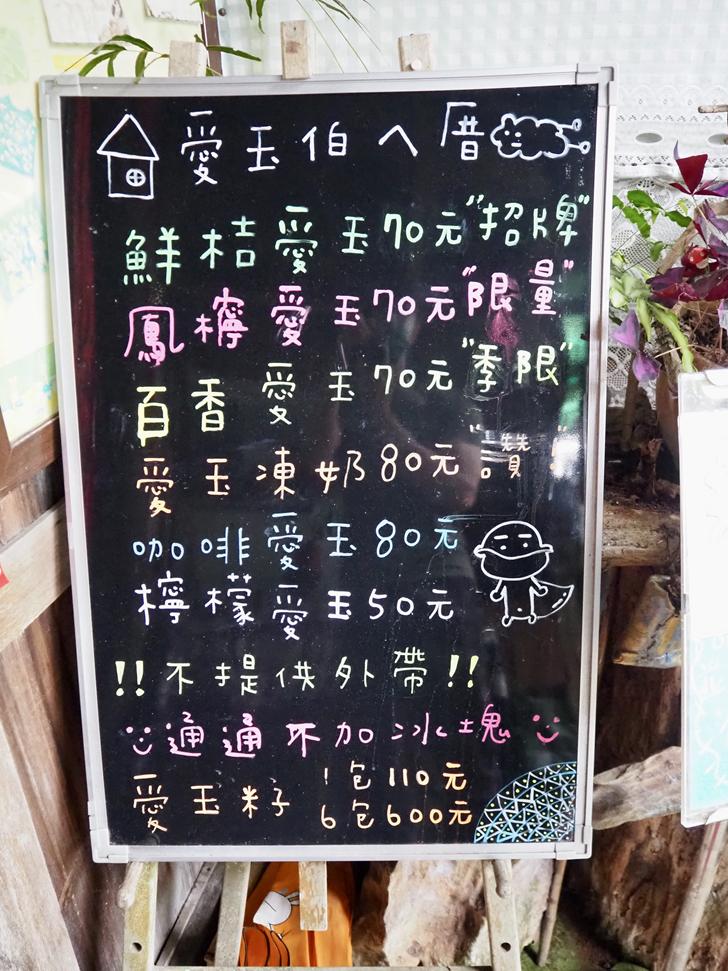 愛玉伯ㄟ厝
鮮桔愛玉70元"招牌"
鳳檸愛玉70元"限量"
百香愛玉70元"季限"
愛玉凍奶80元"讚!"
咖啡愛玉80元
檸檬愛玉50元
!!不提供外帶!!
通通不加冰塊
愛玉籽 1包110元
6包600元